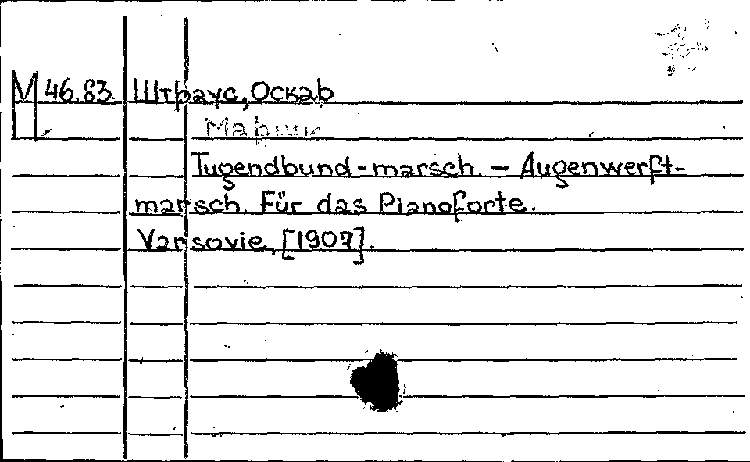 М 46.83 Штраус, Оскар
Марши
Tugendbund-marsch. – Augenwerft-
marsch. Für das Pianoforte.
Varsovie, [1907].